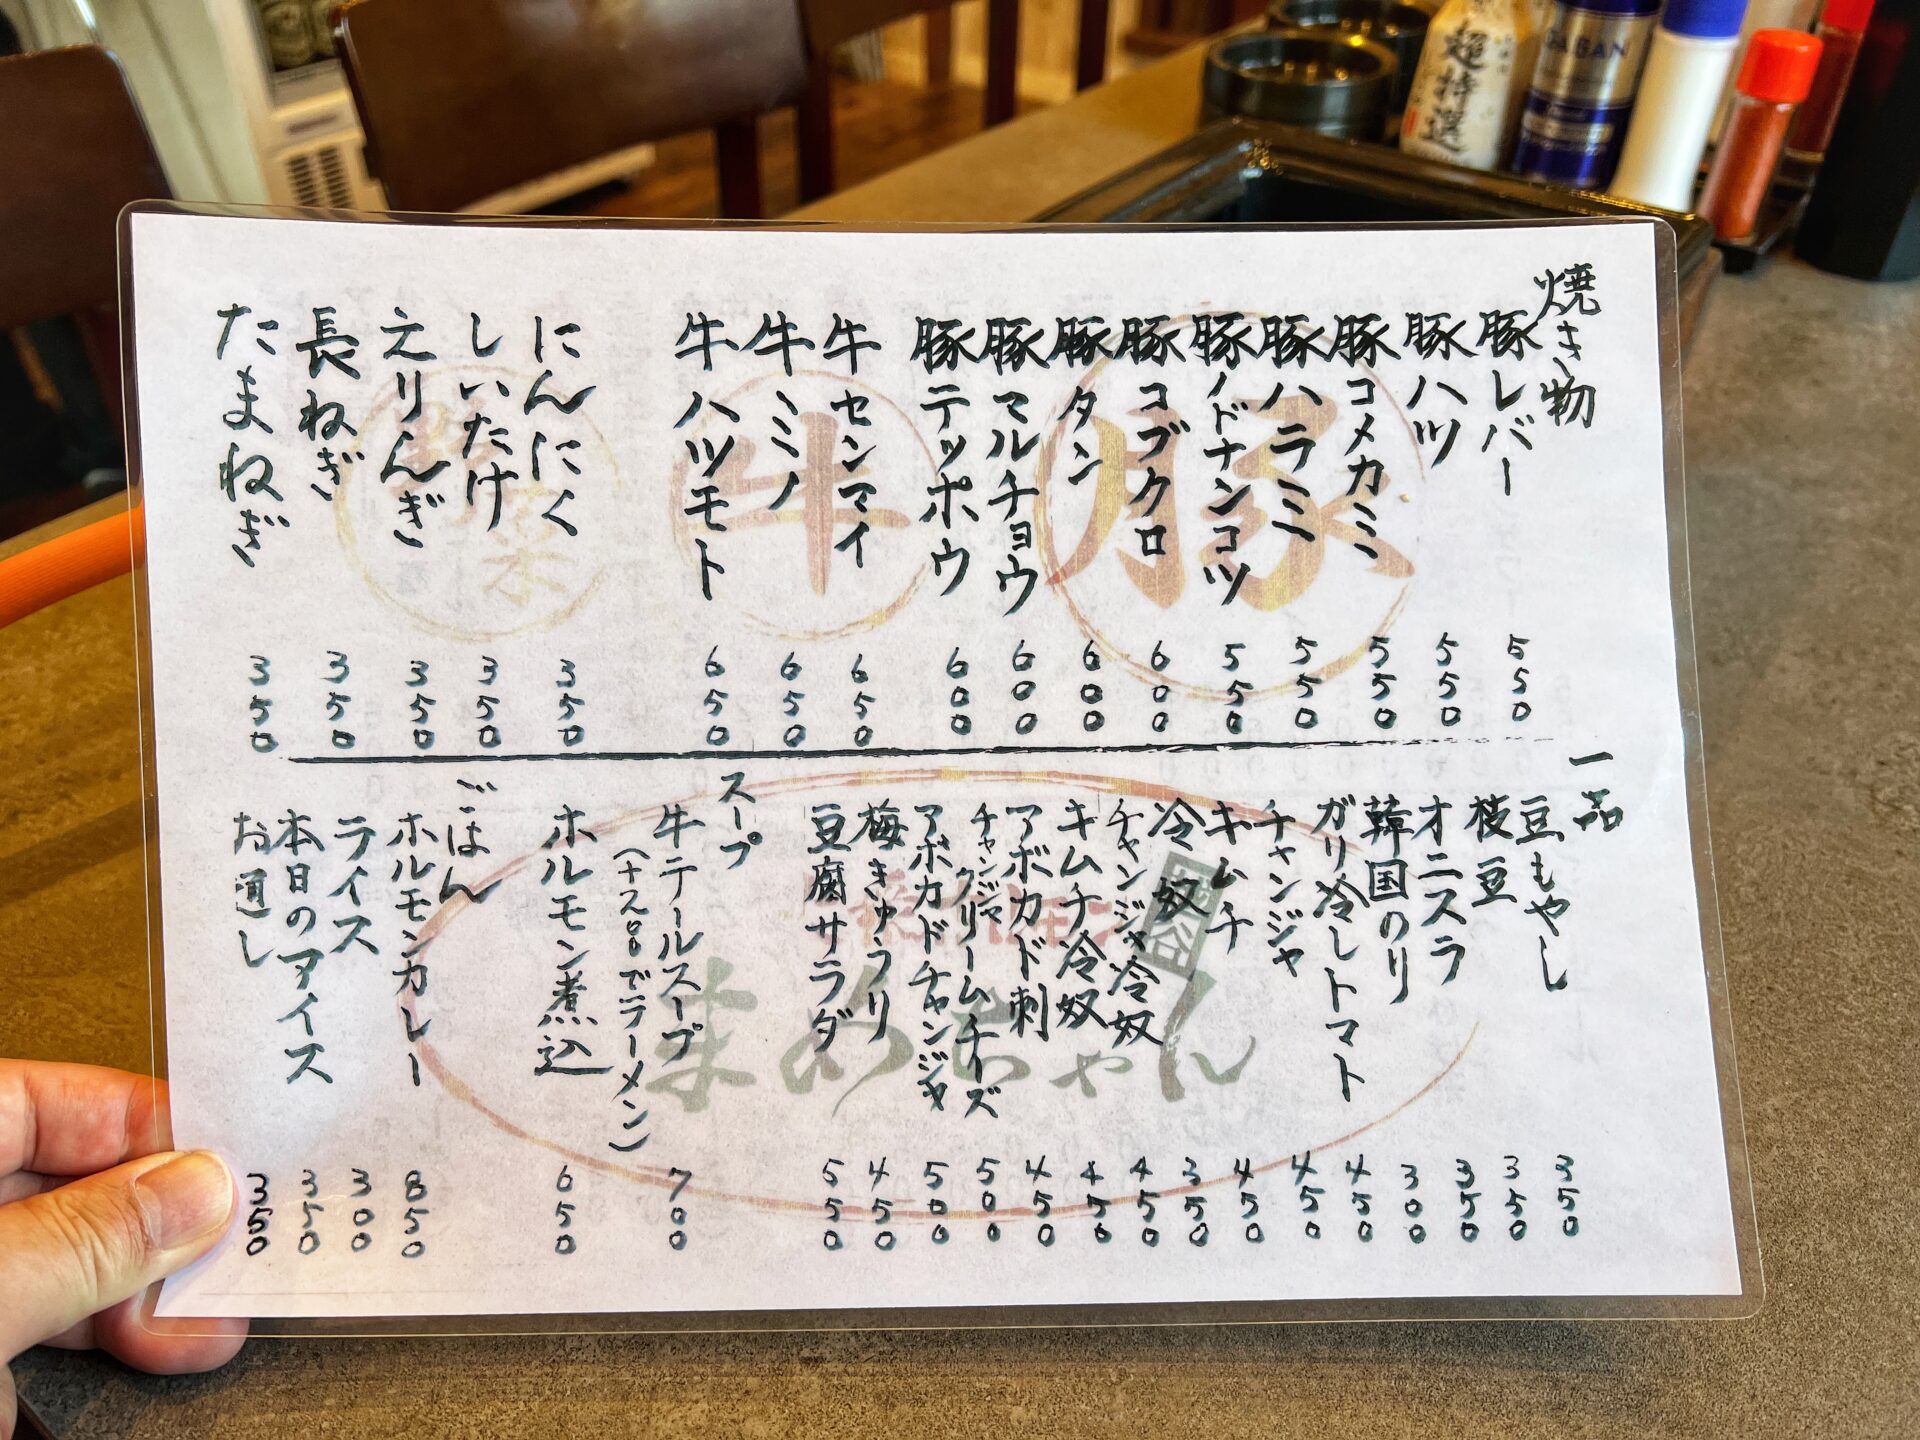 焼き物
豚レバー 550
豚ハツ 550
豚コメカミ 550
豚ハラミ 550
豚ノドナンコツ 550
豚コブクロ 600
豚タン 600
豚マルチョウ 600
豚テッポウ 600
牛センマイ 650
牛ミノ 650
牛ハツモト 650
にんにく 350
しいたけ 350
えりんぎ 350
長ねぎ 350
たまねぎ 350
一品
豆もやし 350
枝豆 350
オニスラ 350
韓国のり 300
ガリ冷しトマト 450
チャンジャ 450
キムチ 450
冷奴 350
チャンジャ冷奴 450
キムチ冷奴 450
アボカド刺 450
チャンジャクリームチーズ 500
アボカドチャンジャ 500
梅きゅうり 450
豆腐サラダ 550
スープ
牛テールスープ 700
(+200でラーメン)
ホルモン煮込 650
ごはん
ホルモンカレー 850
ライス 300
本日のアイス 350
お通し 350
豚
牛
野菜
まめちゃん
超特選
GABAN